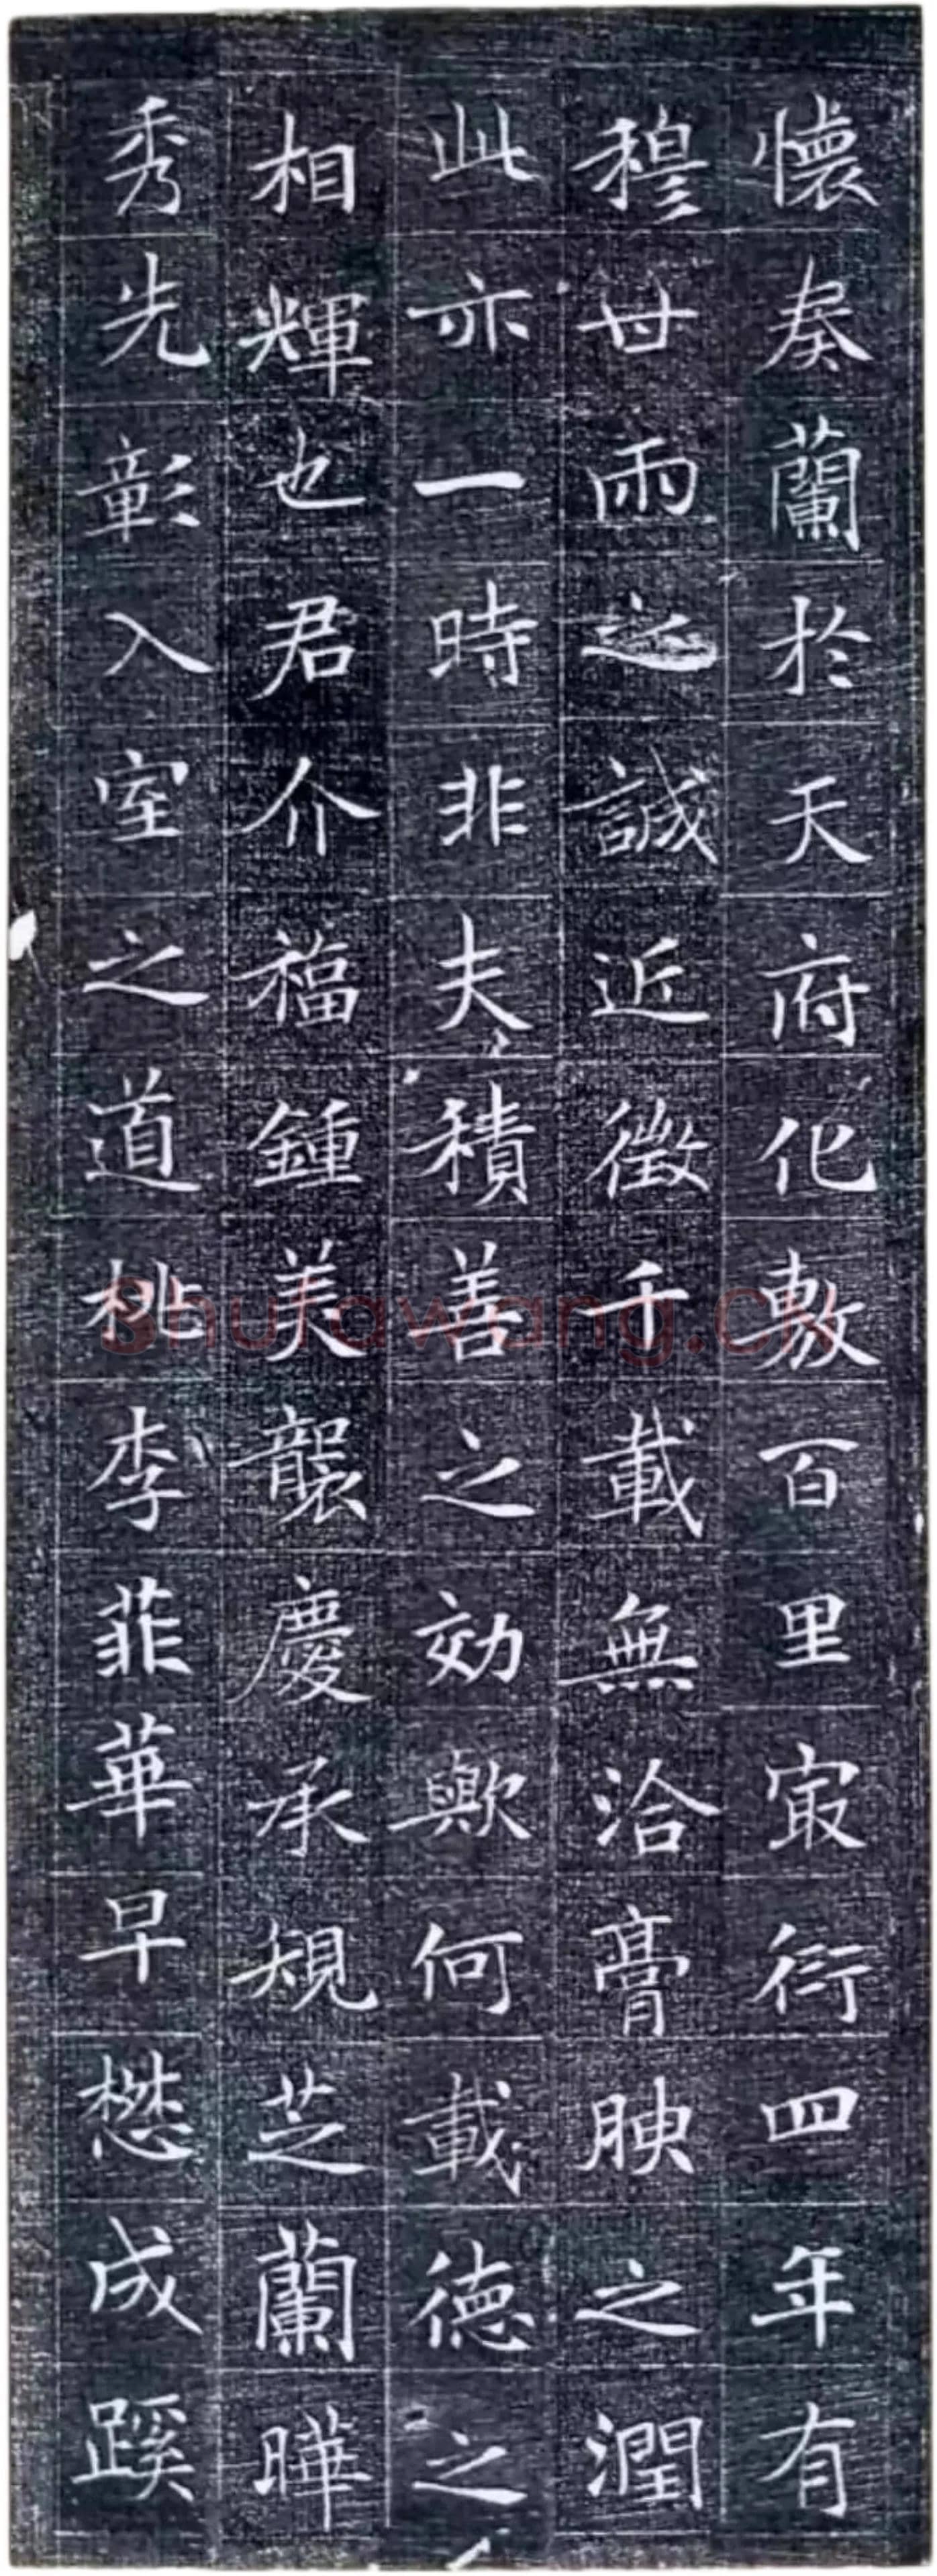 懷奏蘭於天府化敷百里冣衍四年有
穆世雨之誠近徵千載無洽膏腴之潤
此亦一時非夫積善之効歟何載德之
相輝也君介福鍾美襲慶承規芝蘭曄
秀先彰入室之道桃李菲華早懋成蹊
Shufawang.cn